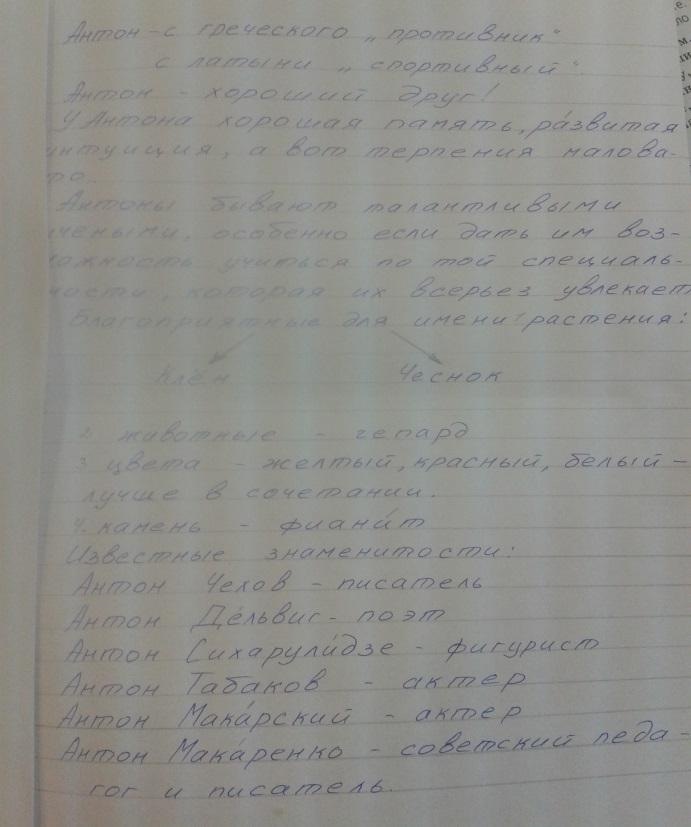 Антон - с греческого „противник"
с латыни „спортивный".
Антон - хороший друг!
У Антона хорошая память, ра́звитая
интуиция, а вот терпения малова-
то.
Антоны бывают талантливыми
учеными, особенно если дать им воз-
можность учиться по той специаль-
ности, которая их всерьез увлекает
Благоприятные для имени 1 растения:
Клён Чеснок
2 животные - гепард
3 цвета - желтый, красный, белый -
лучше в сочетании.
4. камень - фиани́т
Известные знаменитости:
Антон Чехов - писатель
Антон Де́львиг - поэт
Антон Сихарули́дзе - фигурист
Антон Табаков - актер
Антон Мака́рский - актер
Антон Мака́ренко - советский педа-
гог и писатель.